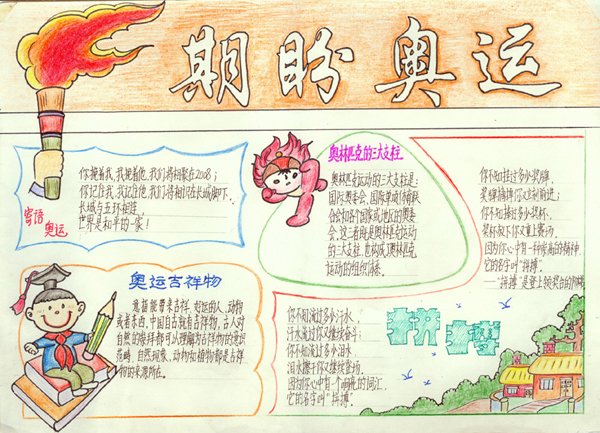 期盼奥运
寄语
奥运
你挽着我,我挽着他,我们将相聚在2008;
你记住我,我记住他,我们将相识在长城脚下。
长城与五环相连,
世界是和平的一家!
奥林匹克的三大支柱
奥林匹克运动的三大支柱是:
国际奥委会,国际单项体育联
合会和各个国家或地区的奥委
会。这三者既是奥林匹克运动
的三大支柱,也构成了奥林匹克
运动的组织体系。
你不知挂过多少奖牌,
奖牌摘掉你又到前进;
你不知捧过多少奖杯,
奖杯放下你又重上赛场;
因为你心中有一种崇高的精神,
它的名字叫“拼搏”。
——“拼搏”是登上领奖台的阶梯
奥运吉祥物
意指能带来吉祥、好运的人、动物
或者东西。中国自古就有吉祥物,古人对
自然的崇拜都可以理解为吉祥物的意识
范畴,自然现象、动物和植物都是吉祥
物的来源所在。
你不知流过多少汗水,
汗水流过你又继续奋斗;
你不知流过多少泪水
泪水擦干你又继续登场。
因为你心中有一个响亮的词汇,
它的名字叫“拼搏”。
拼搏